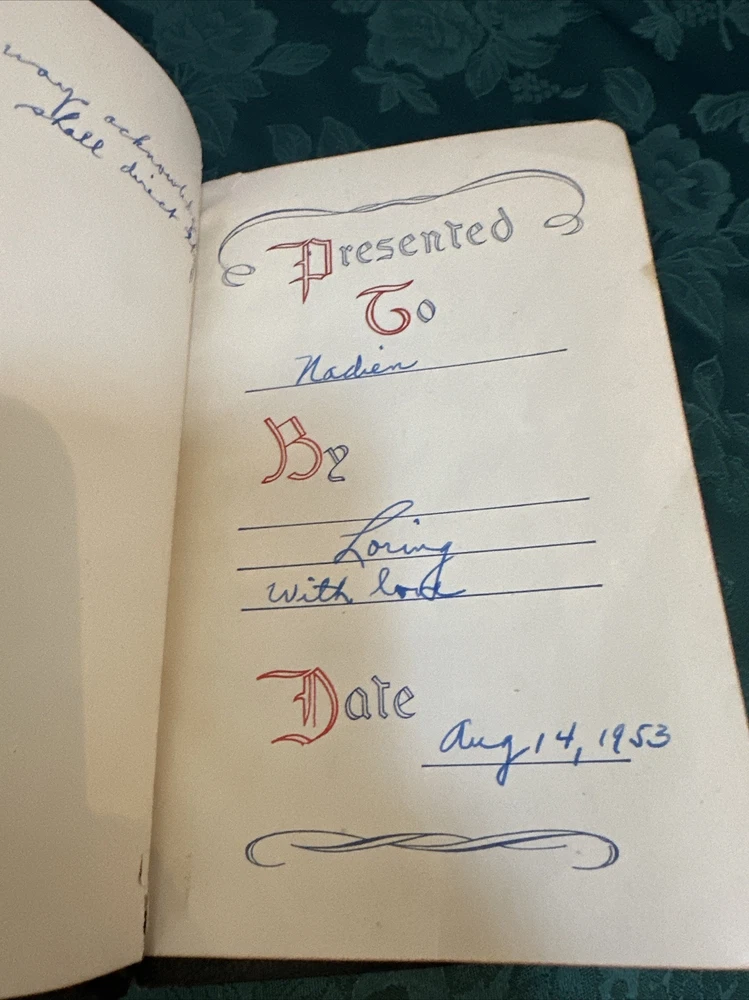 way acknowle
shall direct
Presented
To
Nadien
By
Loring
With love
Date
Aug 14, 1953